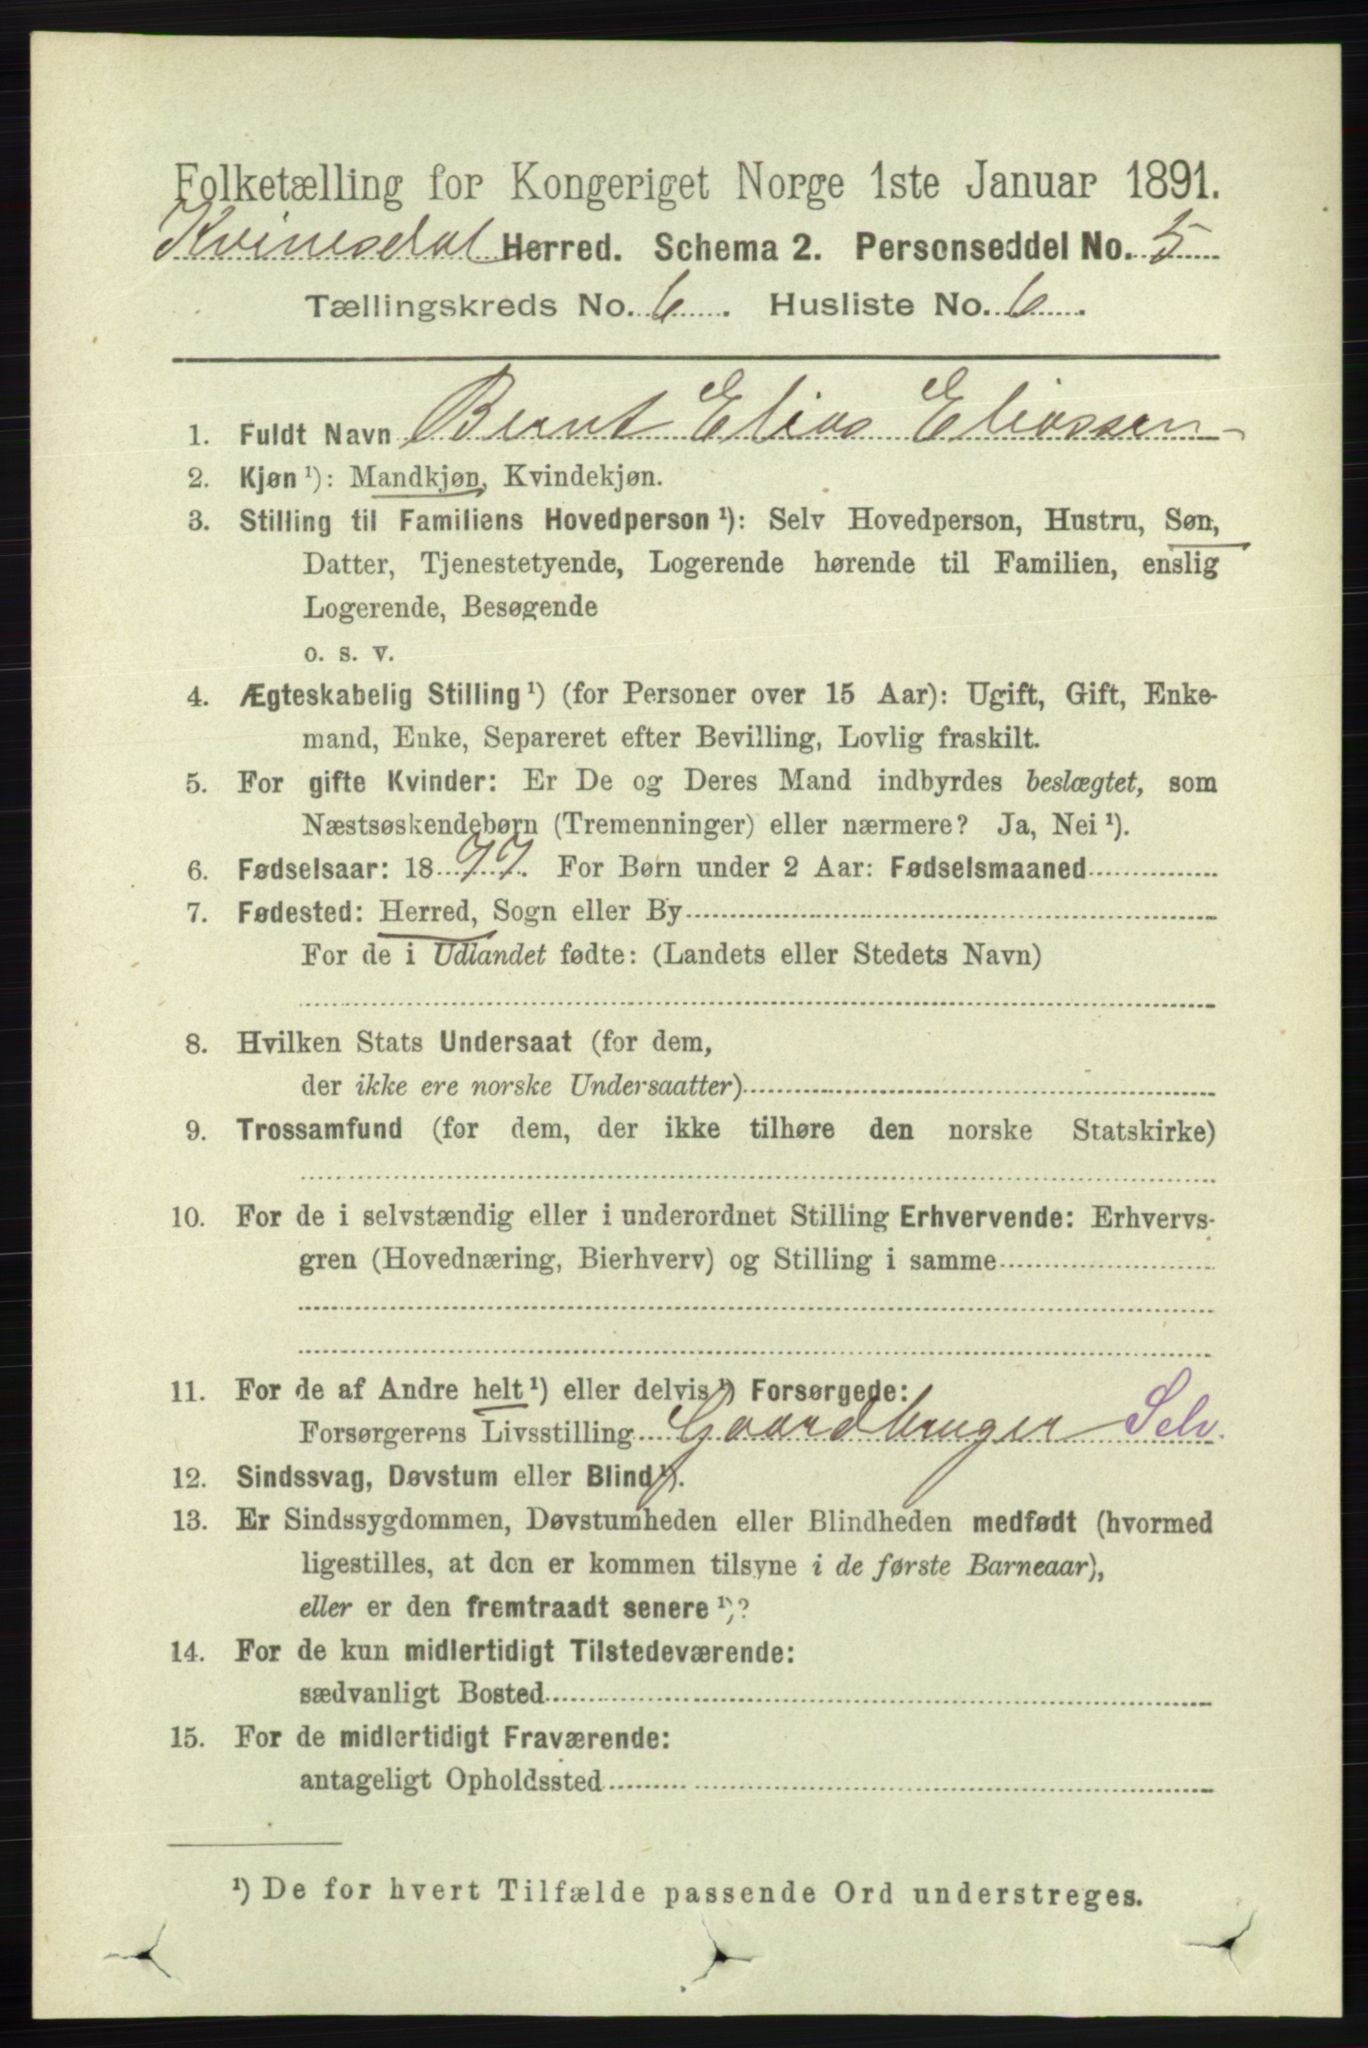 Folketælling for Kongeriget Norge 1ste Januar 1891.
Kvinesdal Herred. Schema 2. Personseddel No. 5
Tællingskreds No. 6. Husliste No. 6.
1. Fuldt Navn Bernt Elias Eliassen
2. Kjøn ¹): Mandkjøn, Kvindekjøn.
3. Stilling til Familiens Hovedperson ¹): Selv Hovedperson, Hustru, Søn,
Datter, Tjenestetyende, Logerende hørende til Familien, enslig
Logerende, Besøgende
o. s. v.
4. Ægteskabelig Stilling ¹) (for Personer over 15 Aar): Ugift, Gift, Enke-
mand, Enke, Separeret efter Bevilling, Lovlig fraskilt.
5. For gifte Kvinder: Er De og Deres Mand indbyrdes beslægtet, som
Næstsøskendebørn (Tremenninger) eller nærmere? Ja, Nei ¹).
6. Fødselsaar: 1877. For Børn under 2 Aar: Fødselsmaaned
7. Fødested: Herred, Sogn eller By
For de i Udlandet fødte: (Landets eller Stedets Navn)
8. Hvilken Stats Undersaat (for dem,
der ikke ere norske Undersaatter)
9. Trossamfund (for dem, der ikke tilhøre den norske Statskirke)
10. For de i selvstændig eller i underordnet Stilling Erhvervende: Erhvervs-
gren (Hovednæring, Bierhverv) og Stilling i samme
11. For de af Andre helt ¹) eller delvis ¹) Forsørgede:
Forsørgerens Livsstilling Gaardbruger Selv.
12. Sindssvag, Døvstum eller Blind ¹).
13. Er Sindssygdommen, Døvstumheden eller Blindheden medfødt (hvormed
ligestilles, at den er kommen tilsyne i de første Barneaar),
eller er den fremtraadt senere ¹)?
14. For de kun midlertidigt Tilstedeværende:
sædvanligt Bosted
15. For de midlertidigt Fraværende:
antageligt Opholdssted
¹) De for hvert Tilfælde passende Ord understreges.